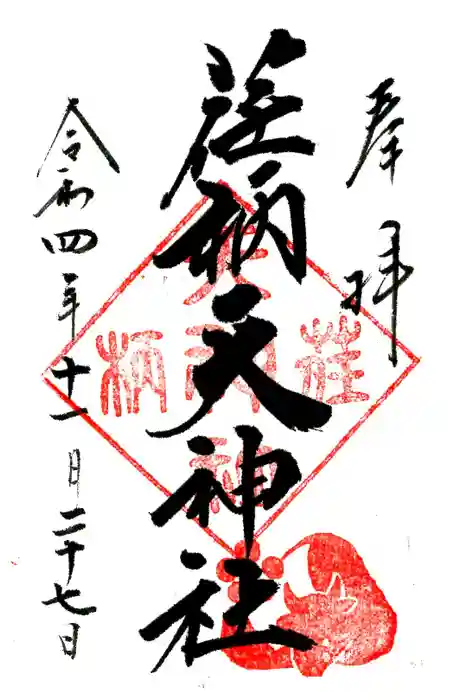 奉拝
荏柄天神社
令和四年十一月二十七日
荏柄
天神社